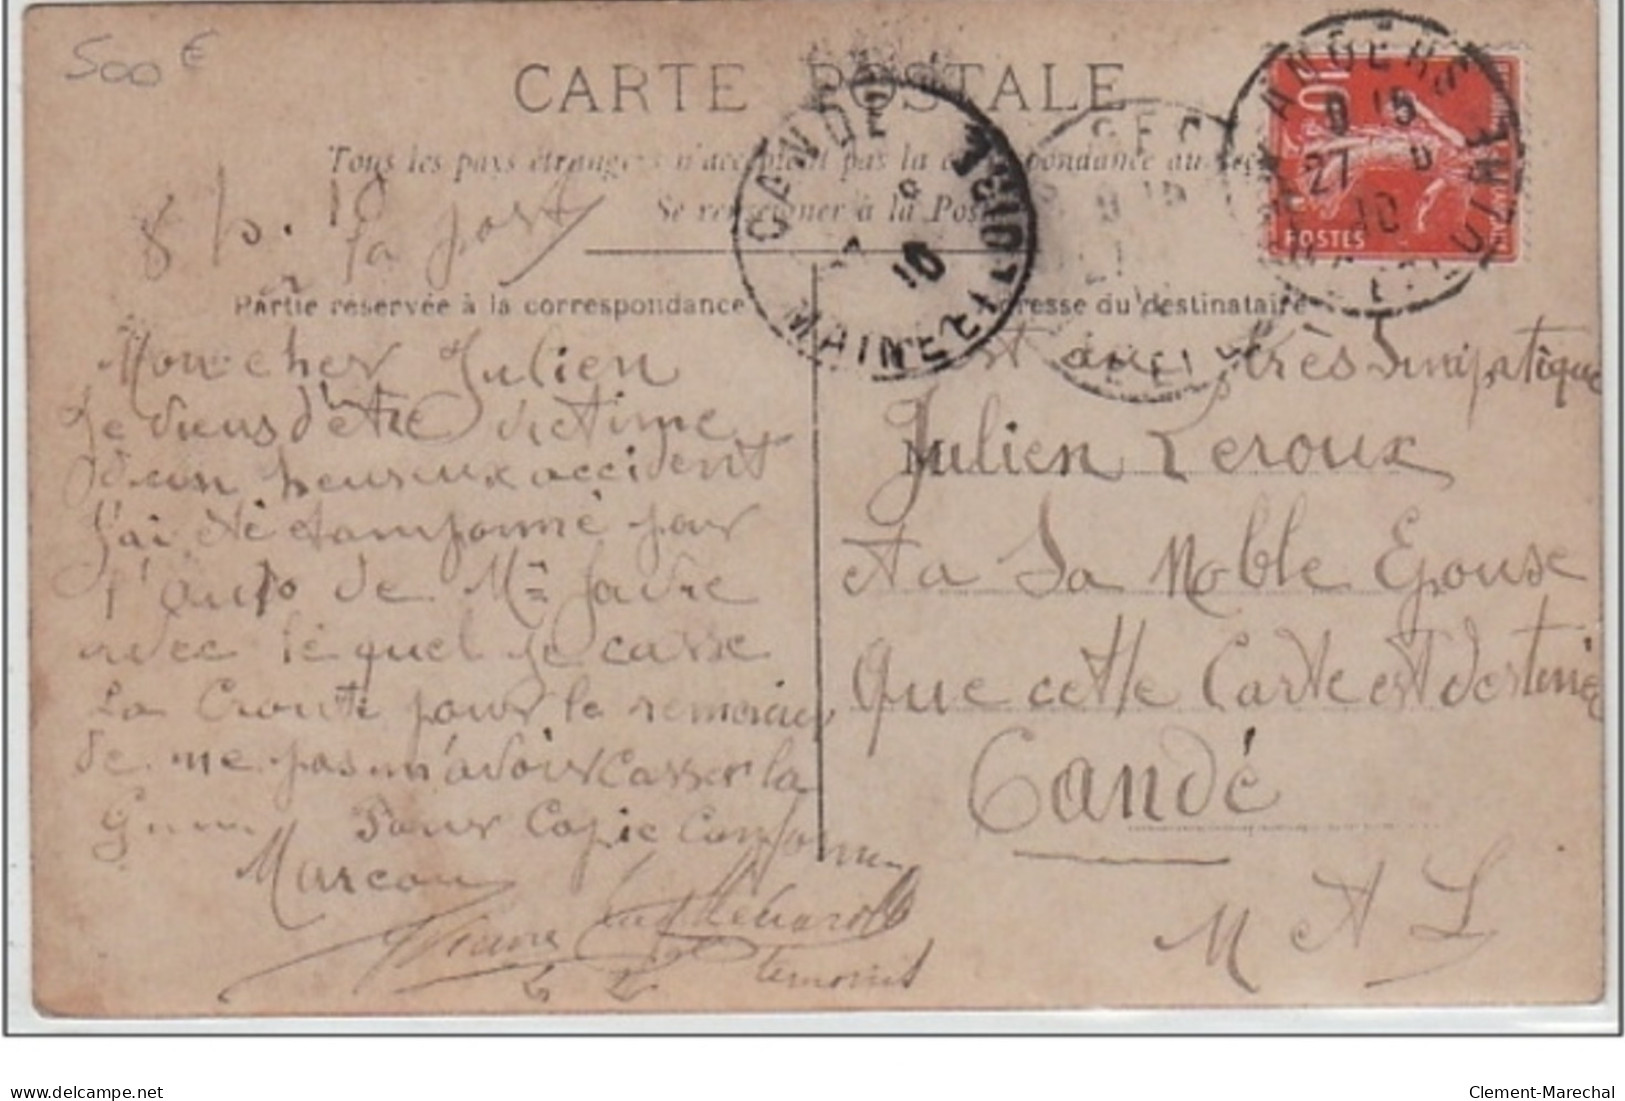 500 €
CARTE POSTALE
Tous les pays étrangers n'acceptent pas la correspondance au
Se renseigner à la Poste
8 h. 10
la post
CANDÉ
MAINE ET LOIRE
10
ANGERS
8 15
27
10
10
POSTES
Partie réservée à la correspondance
Adresse du destinataire
Mon cher Julien
Je viens d'être victime
d'un heureux accident
J'ai été etamponné par
l'auto de Mr Favre
avec le quel je casse
La Croute pour le remercier
de me pas m'avoir casser la
Pour Copie Conforme
Marcou
temoins
Et au très Simpatique
Julien Leroux
Et a Sa Noble Epouse
Que cette Carte est destinée
Candé
M et L
delcampe.net
Clement-Marechal